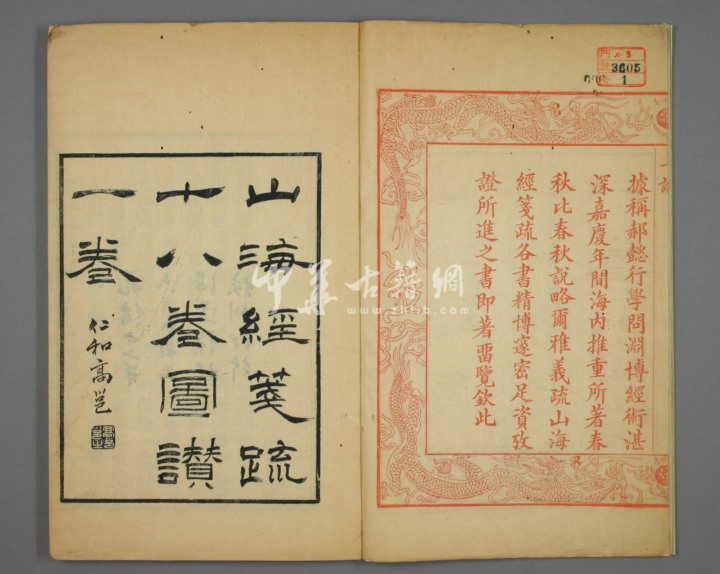 據稱郝懿行學問淵博經術湛
深嘉慶年間海內推重所著春
秋比春秋說略爾雅義疏山海
經箋疏各書精博邃密足資攷
證所進之書即著畱覽欽此
3605
1
山海經箋疏
十八卷圖讃
一卷
仁和高邕
中华古籍網
www.zhlib.com